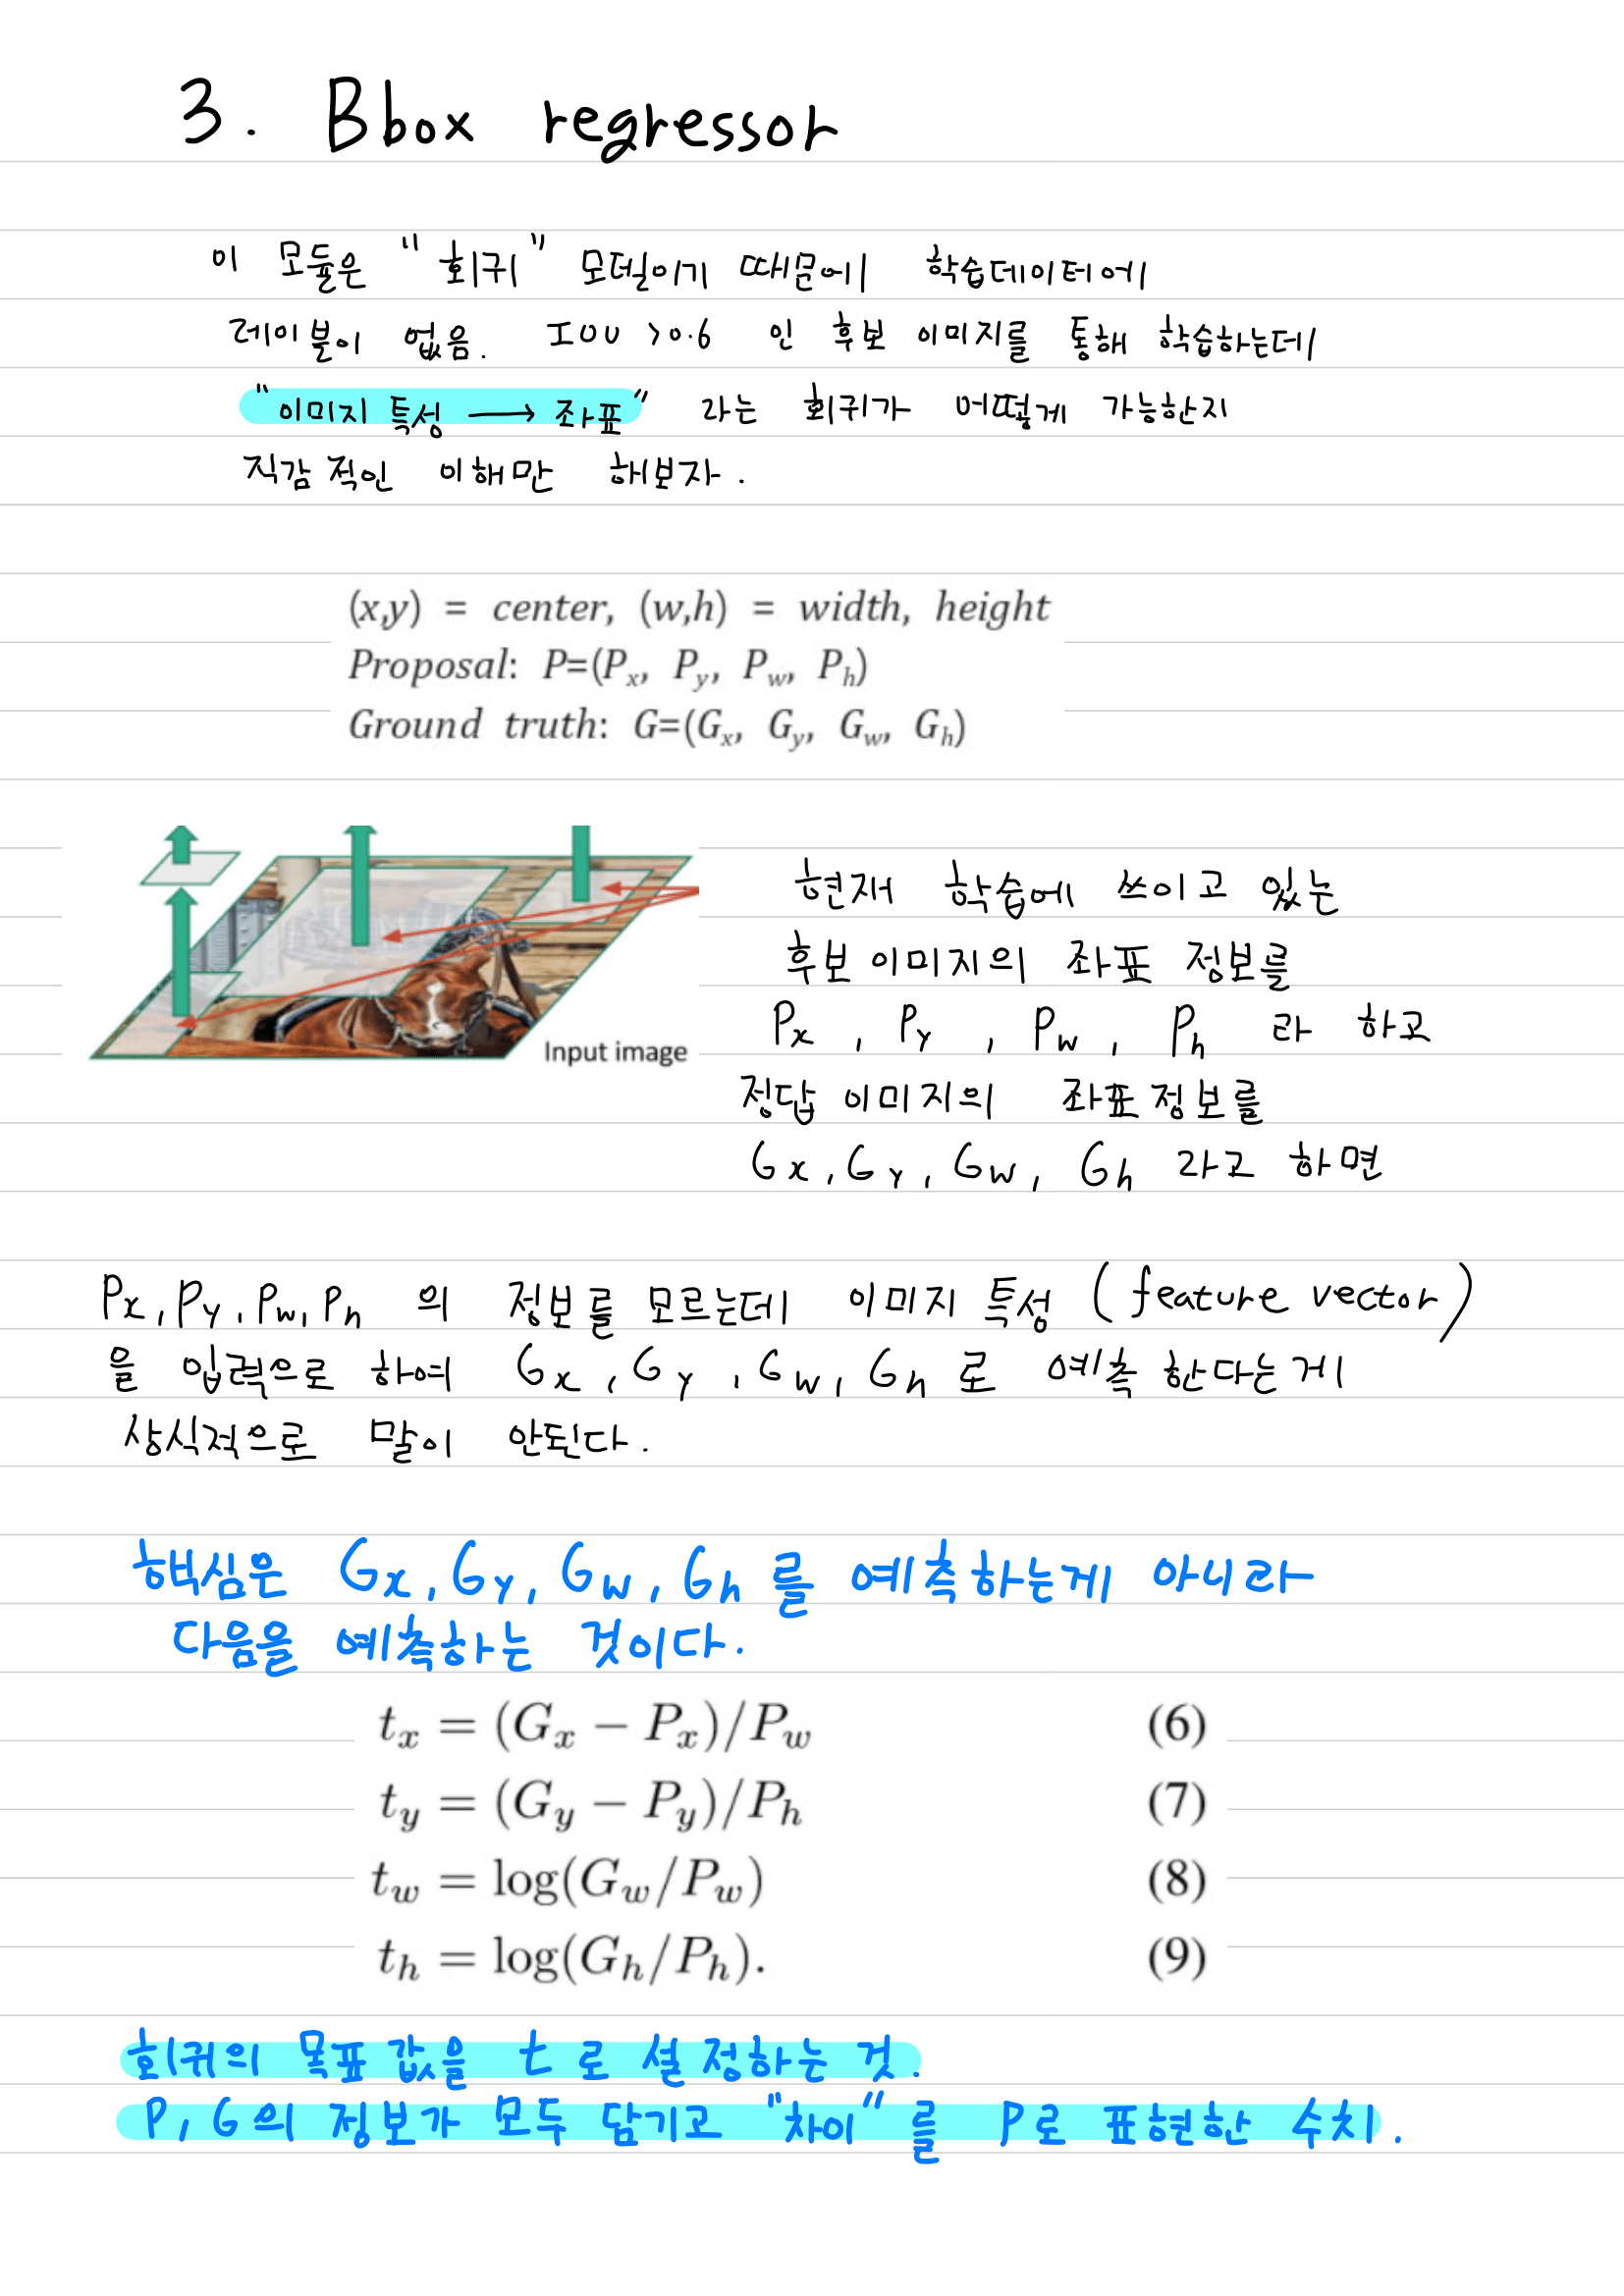 3. Bbox regressor
이 모듈은 "회귀" 모델이기 때문에 학습데이터에
레이블이 없음. IOU >0.6 인 후보 이미지를 통해 학습하는데
"이미지 특성 → 좌표" 라는 회귀가 어떻게 가능한지
직감적인 이해만 해보자.
(x,y) = center, (w,h) = width, height
Proposal: P=(Pₓ, P_y, P_w, P_h)
Ground truth: G=(Gₓ, G_y, G_w, G_h)
Input image
현재 학습에 쓰이고 있는
후보 이미지의 좌표 정보를
Pₓ, P_y, P_w, P_h 라 하고
정답 이미지의 좌표 정보를
Gₓ, G_y, G_w, G_h 라고 하면
Pₓ, P_y, P_w, P_h 의 정보를 모르는데 이미지 특성 (feature vector)
을 입력으로 하여 Gₓ, G_y, G_w, G_h 로 예측 한다는게
상식적으로 말이 안된다.
핵심은 Gₓ, G_y, G_w, G_h 를 예측하는게 아니라
다음을 예측하는 것이다.
tₓ = (Gₓ − Pₓ)/P_w (6)
t_y = (G_y − P_y)/P_h (7)
t_w = log(G_w/P_w) (8)
t_h = log(G_h/P_h). (9)
회귀의 목표 값을 t로 설정하는 것.
P, G의 정보가 모두 담기고 "차이"를 P로 표현한 수치.